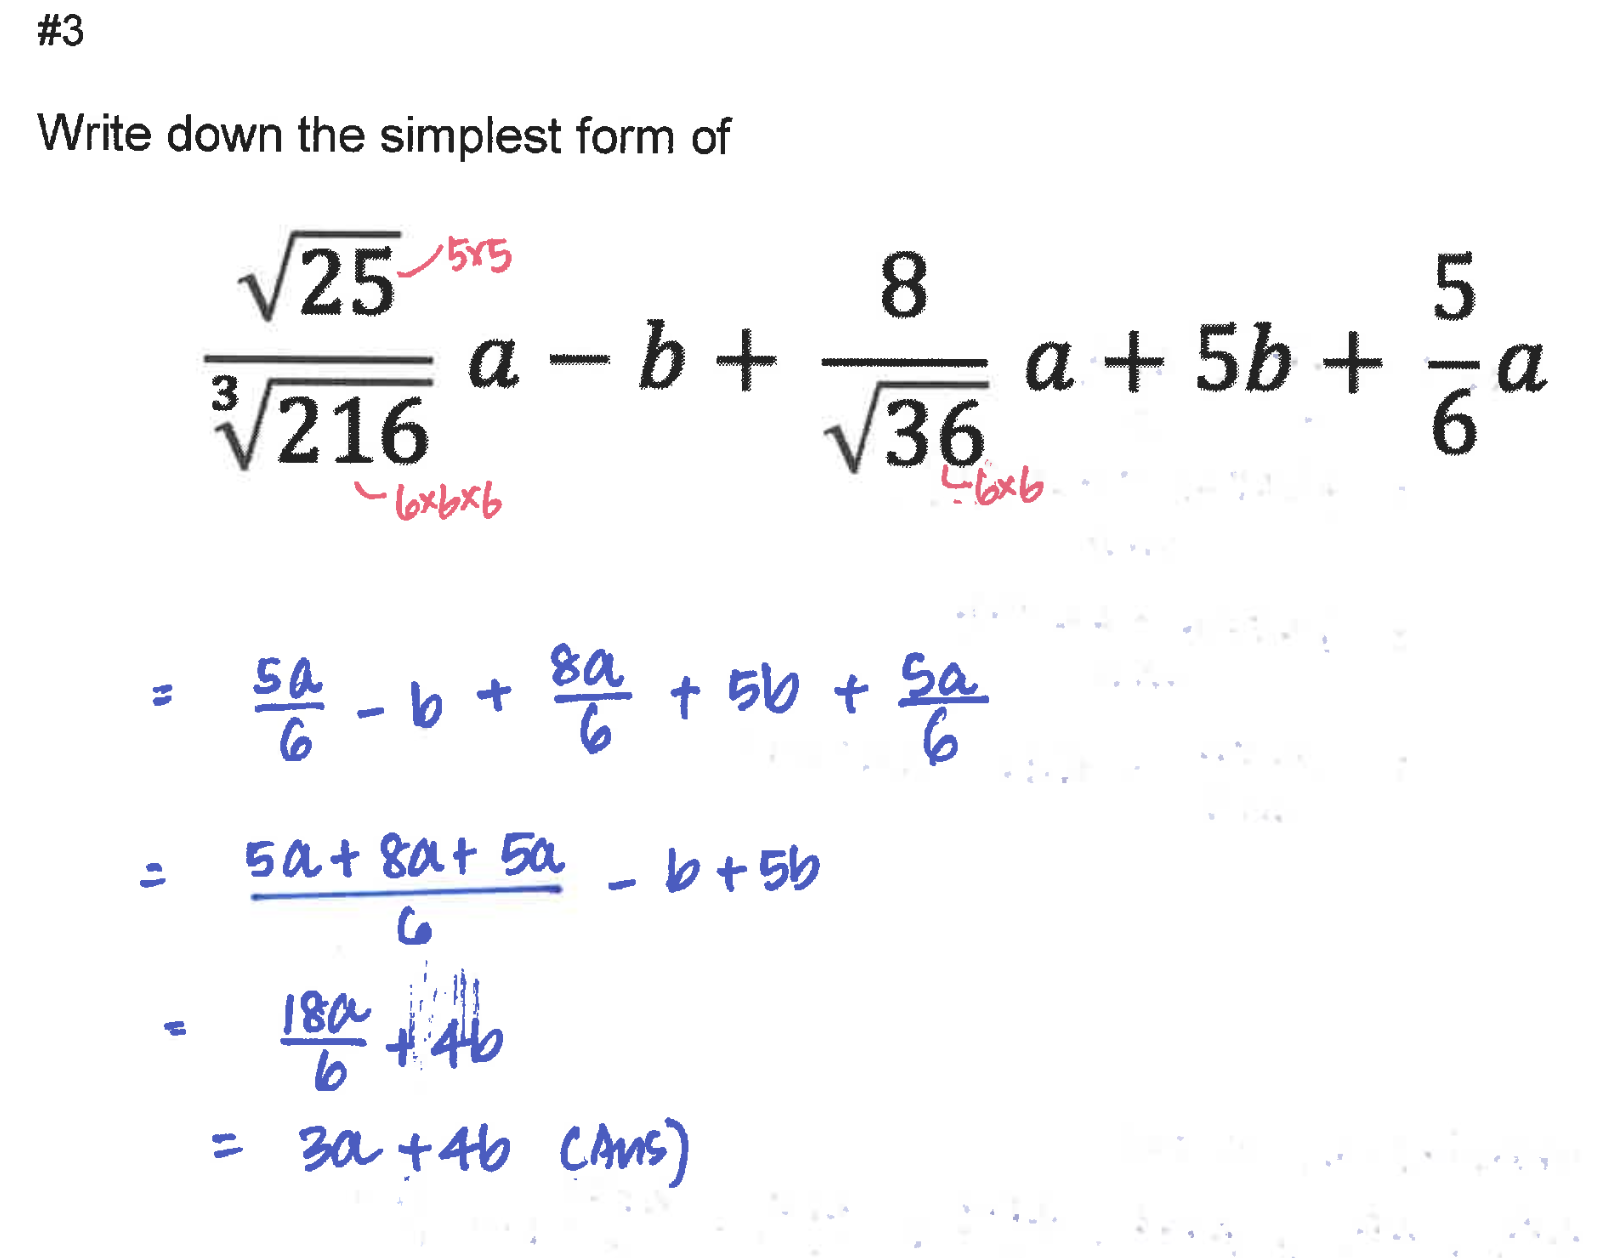 #3
Write down the simplest form of
√25/∛216 a − b + 8/√36 a + 5b + 5/6 a
5×5
6×6×6
6×6
= 5a/6 - b + 8a/6 + 5b + 5a/6
= (5a + 8a + 5a)/6 - b + 5b
= 18a/6 + 4b
= 3a + 4b (Ans)